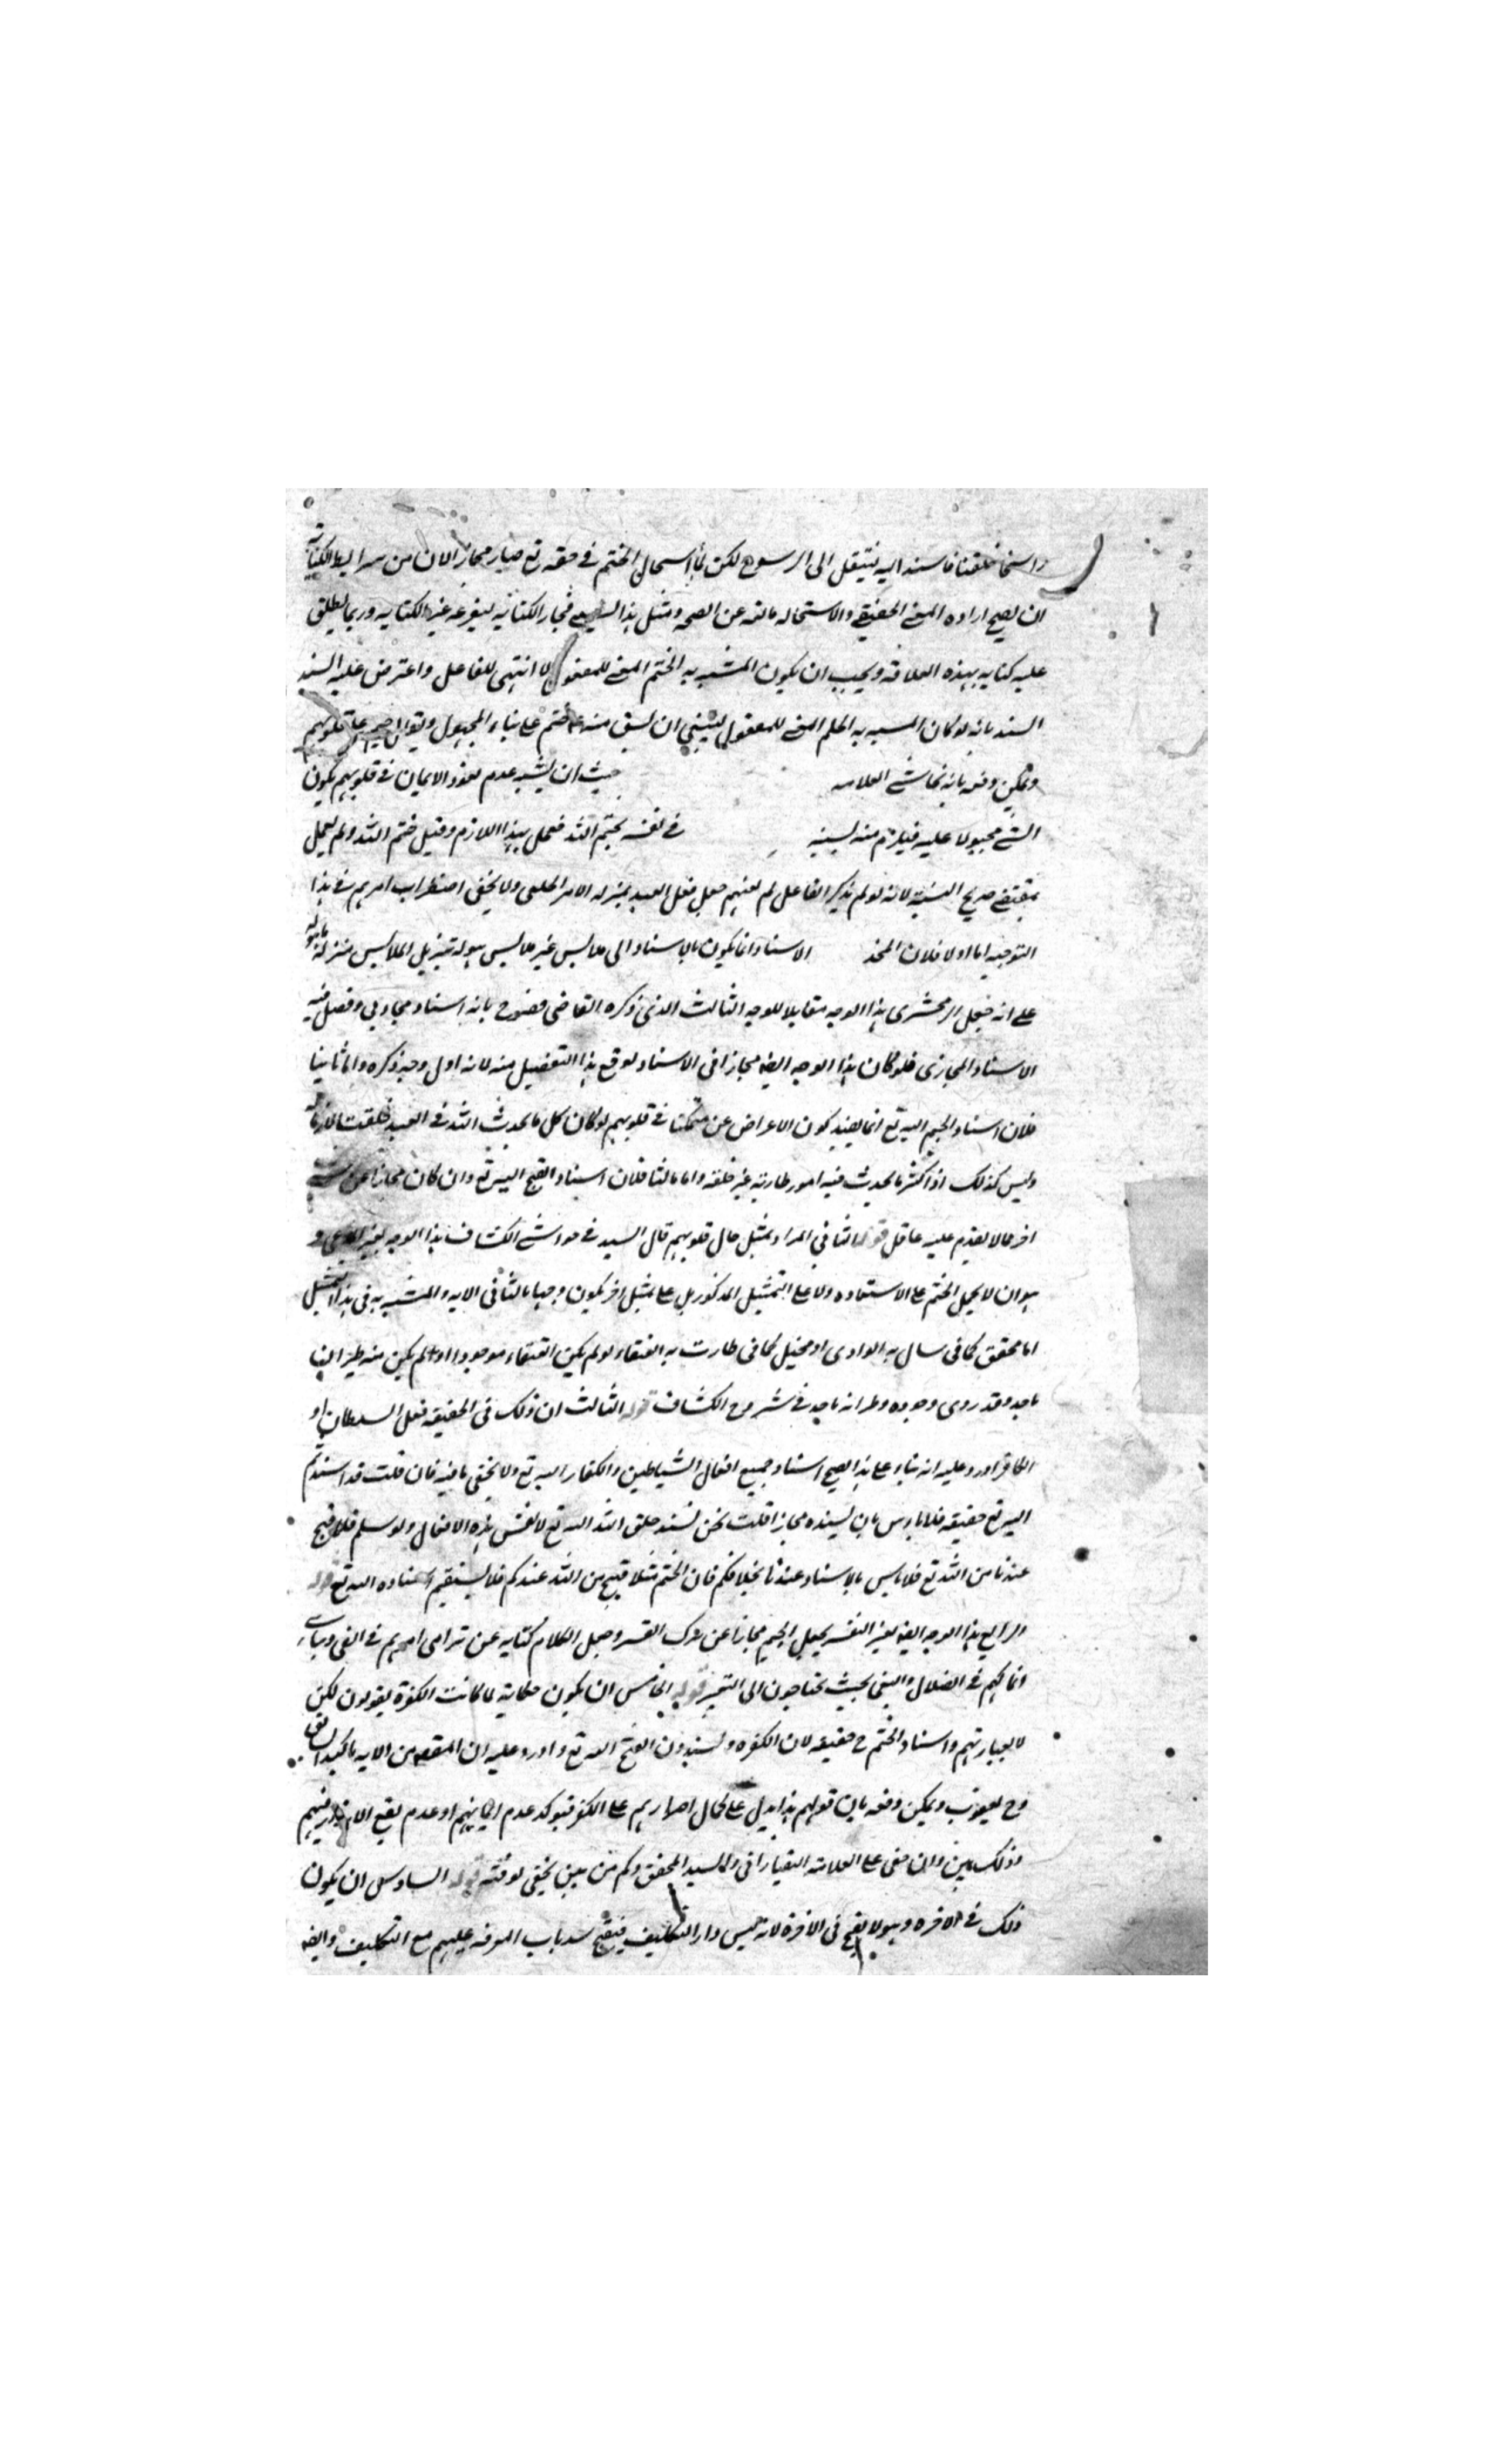 راسخا خلقنا فاسند اليه لينتقل الى الرسوخ لكن لما استحال الختم في حقه تع صار مجازا لان من شرايط الكناية
ان يصح اراده المعنى الحقيقي والاستحاله مانعه عن الصحه ومثل هذا يسمى مجاز الكنايه ليفرعه عن الكنايه وربما يطلق
عليه كنايه بهذه العلاقه ويجب ان يكون المشبه به الختم المبني للمفعول لا انتهى للفاعل واعترض عليه السند
السند بانه لو كان المشبه به الختم المبني للمفعول لينبغي ان يشق منه ختم على بناء المجهول ويقال ختم على قلوبهم
ويمكن دفعه بانه نحا شى العلامه حيث ان يشبه عدم نفوذ الايمان في قلوبهم بكون
الشي مجبولا عليه فيلزم منه نسبته في نفسه بختم الله فعمل بهذا اللازم وقيل ختم الله ولم يعمل
بمقتضى صريح النسبة لانه لو لم يذكر الفاعل لم يفهم جعل فعل العبد بمنزله الامر الخلقي ولا يخفى اضطراب امرهم في هذا
التوجيه اما اولا فلان المجاز الاسناد انما يكون بالاسناد الى ملابس غير ملابس هوله تنزيل الملابس منزلة ما هوله
على انه جعل الزمخشرى هذا الوجه مقابلا للوجه الثالث الذى ذكره القاضى فصرح بانه اسناد مجازي وفصل فيه
الاسناد المجازى فلو كان هذا الوجه ايضا مجازا فى الاسناد لوقع هذا التفصيل منه لانه اول وجه ذكره واما ثانيا
فلان اسناد الختم اليه تع انما يفيد كون الاعراض عن متمكنا في قلوبهم لو كان كل ما يحدث الله في العبد خلقت لازما له
وليس كذلك اذ اكثر ما يحدث فيه امور طاريه غير خلقه واما ثالثا فلان اسناد القبح اليه تع وان كان مجازا عن
اخر مما لا يقدم عليه عاقل قوله الثاني المراد تمثيل حال قلوبهم قال السيد في حواشي الكشاف هذا الوجه
هو ان لا يحمل الختم على الاستعاره ولا على التمثيل المذكور بل على تمثيل اخر يكون وجها ثالثا فى الايه والمشبه به فى هذا التمثيل
اما محقق كما في سال به الوادى او مخيل كما فى طارت به العنقاء لو لم يكن العنقاء موجودا او لم يكن منه طيران
ما جد وقد روى وجوده وطرانه ما جد في شروح الكشاف قوله الثالث ان ذلك فى الحقيقه فعل الشيطان او
الكافر اورد عليه انه بناء على هذا يصح اسناد جميع افعال الشياطين والكفار اليه تع ولا يخفى ما فيه فان قلت قد اسندتم
اليه تع حقيقه فلا باس بان يسنده مجازا قلت نحن نسند خلق الله اليه تع لا نفس هذه الافعال ولو سلم فلا قبح
عندنا من الله تع فلا باس بالاسناد عندنا بخلافكم فان الختم مثلا قبيح من الله عندكم فلا يستقيم اسناده اليه تع قوله
الرابع هذا الوجه ايضا بغير التفسير بجعل الختم مجازا عن ترك القسر وجعل الكلام كنايه عن ترامى امرهم في الغي وتناهي
انهماكهم في الضلال والبغي بحيث يحتاجون الى التميز قوله الخامس ان يكون حكاية لما كانت الكفرة يقولون لكن
لا بعبارتهم واسناد الختم ح حقيقه لان الكفره يسندون القبح اليه تع واورد عليه ان المقصود من الايه تاكيد السابق
وح يفوت ويمكن دفعه بان قولهم هذا يدل على كمال اصرارهم على الكفر فيوكد عدم ايمانهم او عدم نفع الانذار فيهم
وذلك بين وان خفى على العلامه التفتازانى والسيد المحقق وكم من بين يخفى لدقته قوله السادس ان يكون
ذلك في الاخره وهو لا يقبح فى الاخرة لانه ليس دار التكليف فيقبح سد باب المعرفه عليهم مع التكليف وايضا